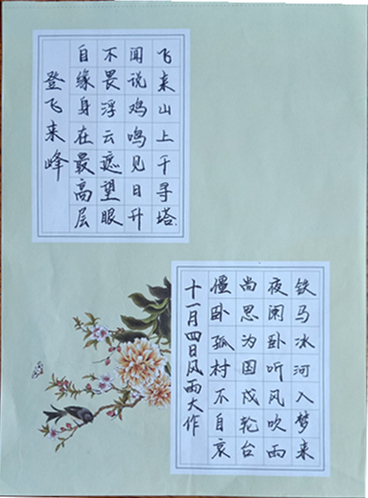 飞来山上千寻塔.
闻说鸡鸣见日升
不畏浮云遮望眼
自缘身在最高层
登飞来峰
十一月四日风雨大作
僵卧孤村不自哀
尚思为国戍轮台
夜阑卧听风吹雨
铁马冰河入梦来